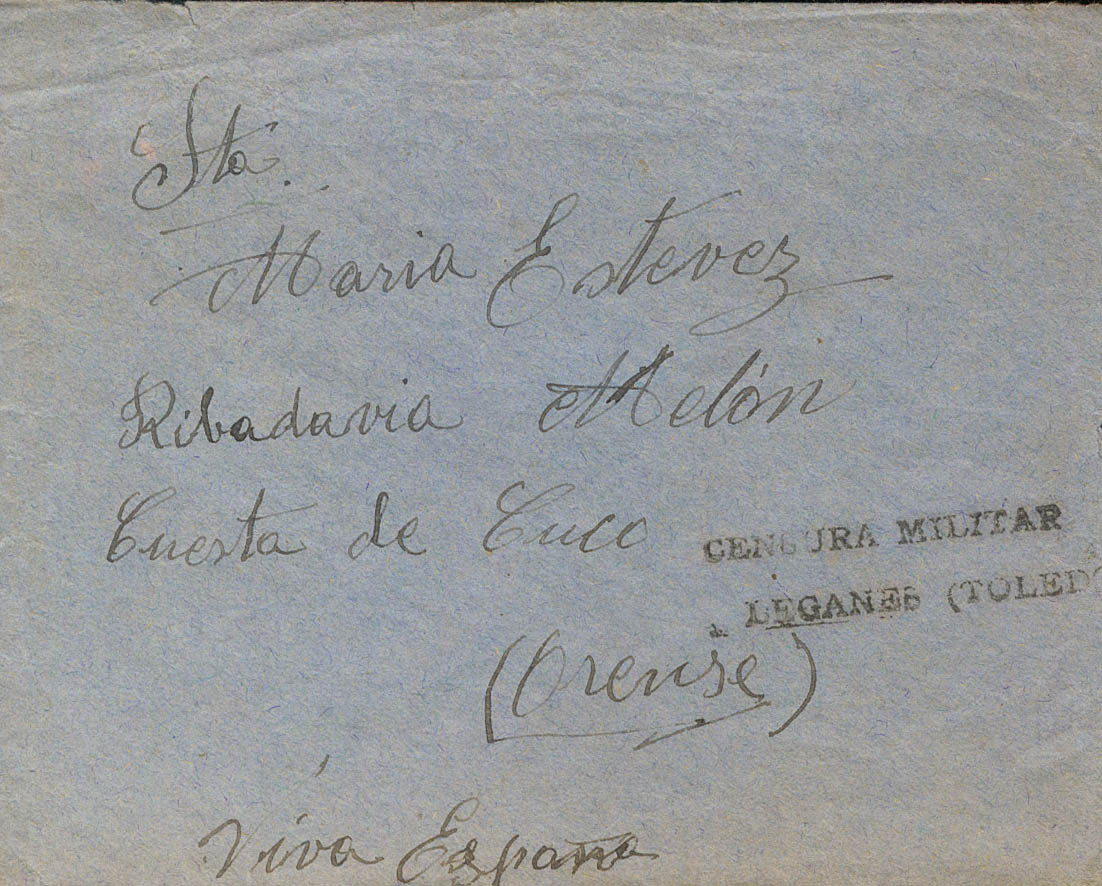 Sta.
Maria Estevez
Ribadavia Melón
Cuesta de Cuco
CENSURA MILITAR
LEGANES (TOLEDO
(Orense)
Viva España